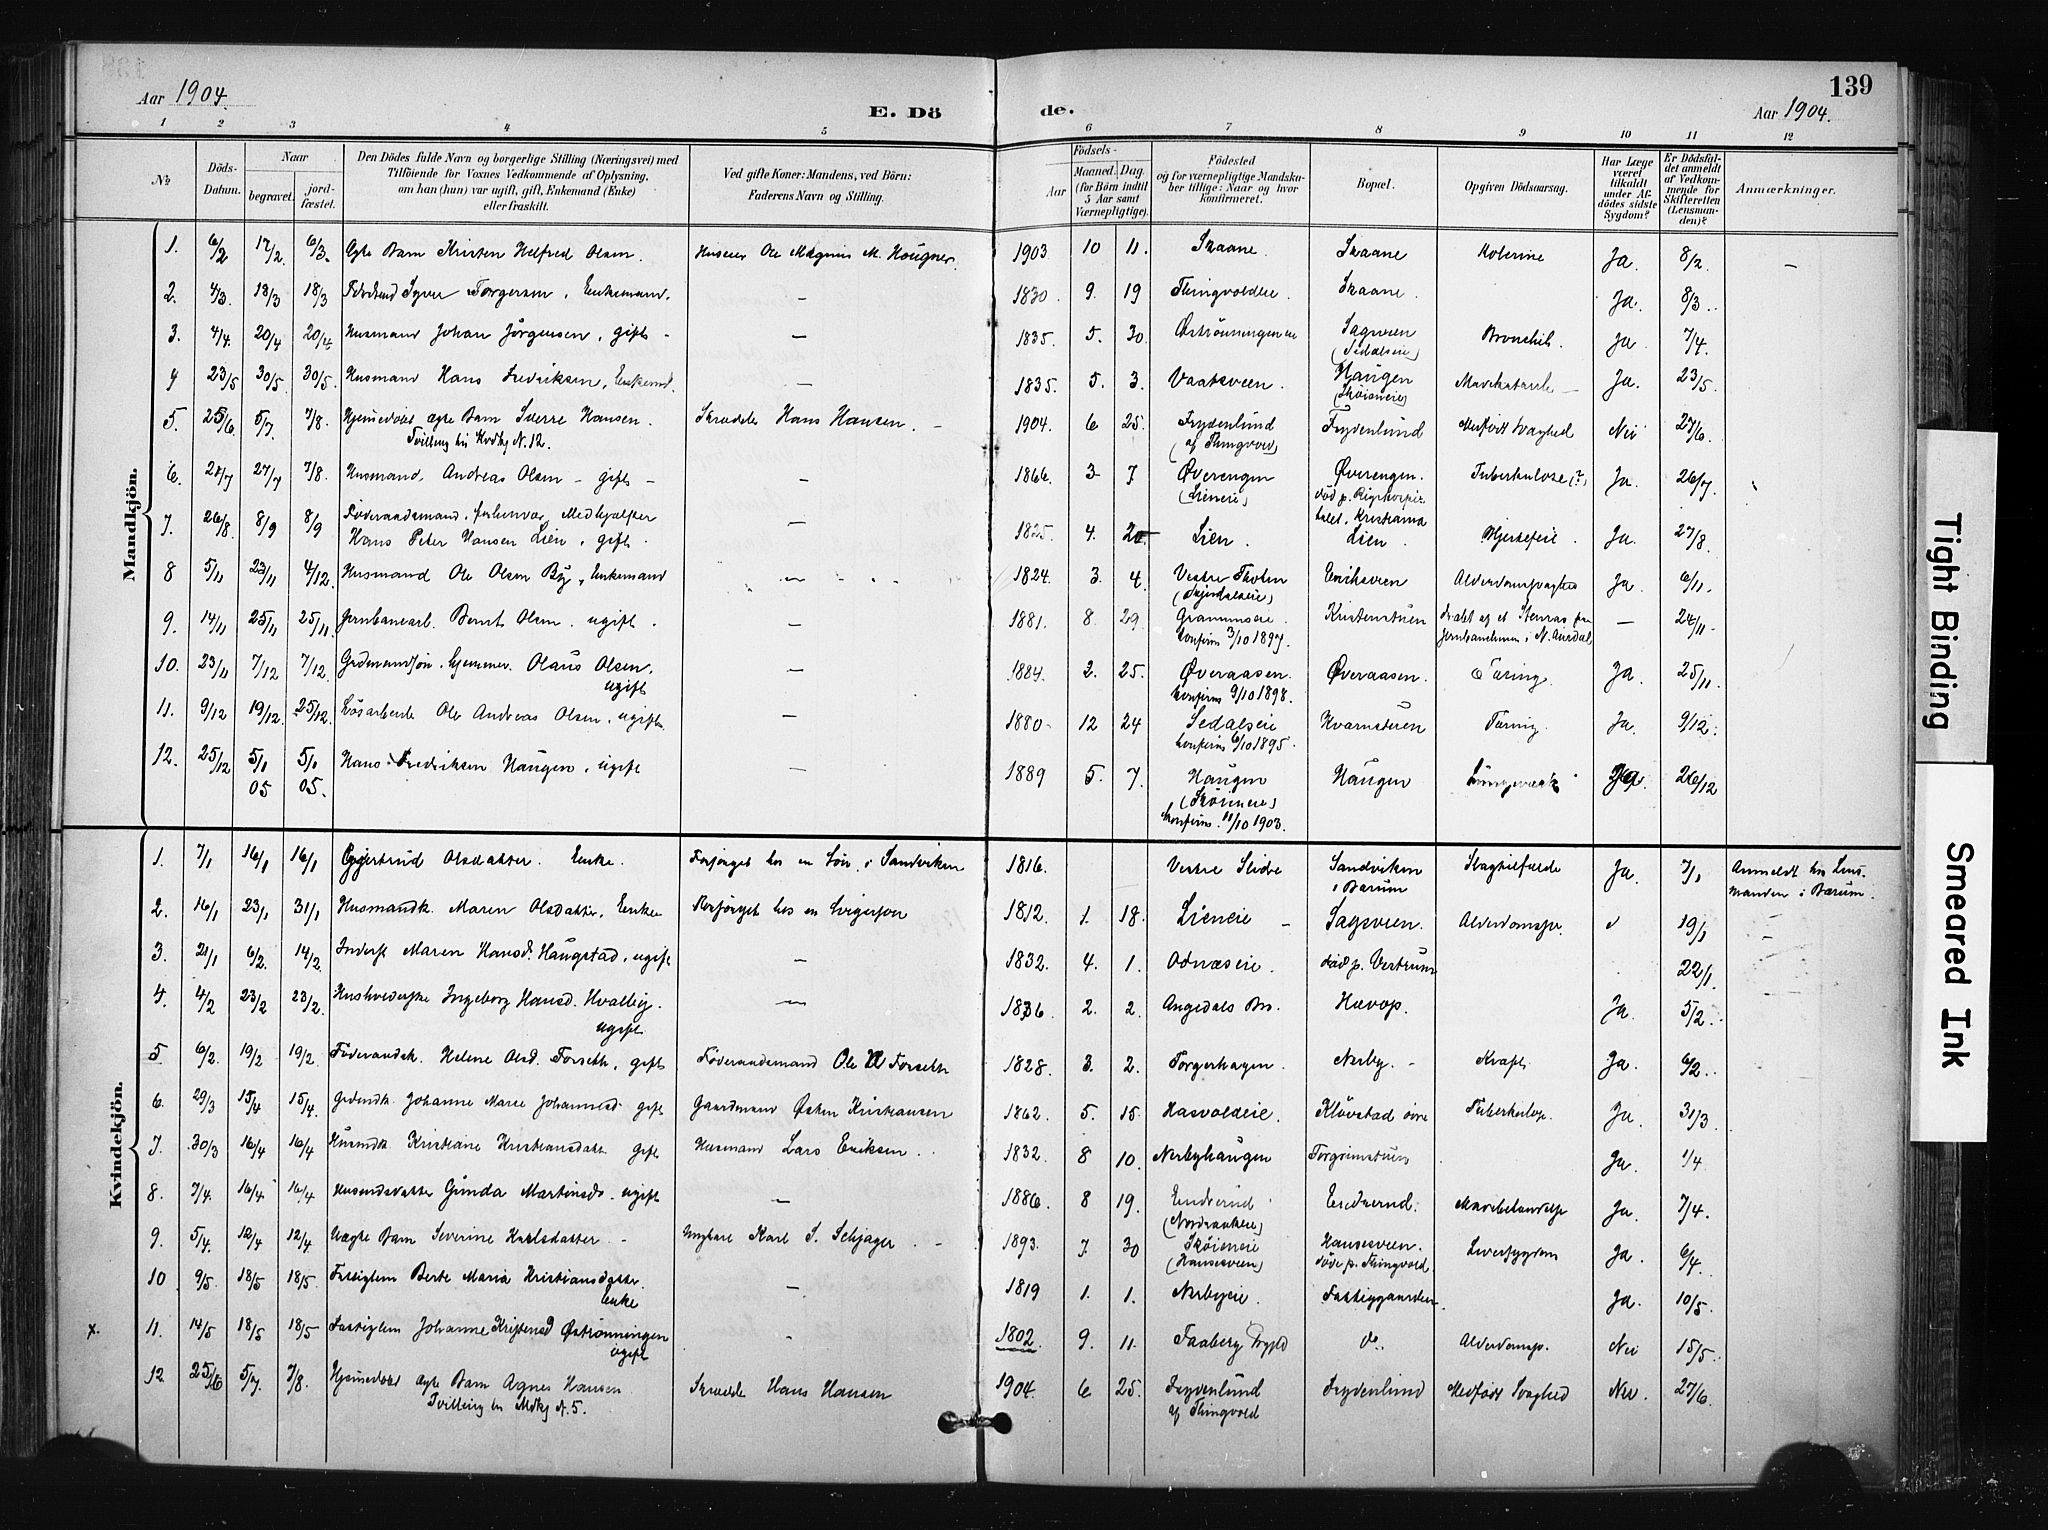 139
Aar 1904.
E. Dö
de.
Aar 1904.
1 2 3 4 5 6 7 8 9 10 11 12
№
Döds-
Datum.
Naar
begravet.
jord-
fæstet.
Den Dödes fulde Navn og borgerlige Stilling (Næringsvei) med
Tilföiende for Voxnes Vedkommende af Oplysning,
om han (hun) var ugift, gift, Enkemand (Enke)
eller fraskilt.
Ved gifte Koner: Mandens, ved Börn:
Faderens Navn og Stilling.
Födsels-
Aar
Maaned.
Dag.
(for Börn indtil
5 Aar samt
Værnepligtige).
Födested
og for værnepligtige Mandsku-
ber tillige: Naar og hvor
konfirmeret.
Bopæl.
Opgiven Dödsaarsag.
Har Læge
været
tilkaldt
under Af-
dödes sidste
Sygdom?
Er Dödsfal-
det anmeldt
af Vedkom-
mende for
Skifteretten
(Lensman-
den)?
Anmærkninger.
Mandkjön.
1. 6/2 17/2. 6/3. Ægte Barn Kristen Helfred Olsen. Huseier Ole Magnus M. Haugner. 1903 10 11. Skaane. Skaane Kolerine Ja. 8/2. –
2. 4/3. 18/3 18/3 Syver Torgersen, Enkemand. – 1830. 9. 19 Thingvoldeie. Skaane. Ja. 8/3.
3. 4/4. 20/4 20/4 Husmand Johan Jörgensen, gift – – 1835. 5. 30. Sagveen Bronchit. Ja. 7/4.
(Sedalseie)
4 23/5 30/5 30/5. Husmand Hans Fredriksen, Enkemd. – 1835. 5. 3. Vaatsveen. Haugen Ja. 23/5.
(Sköieneie)
5. 25/6. 5/7. 7/8. Hjemmedöbt ægte Barn Sverre Hansen. Skrædder Hans Hansen. – 1904. 6 25. Frydenlund Frydenlund Medfödt Svaghed Nei 27/6.
Tvilling til Kvdkj N. 12. (af Thingvold)
6. 21/7 27/7 7/8. Husmand, Andreas Olsen – gift – – 1866. 3 7 Överengen Överengen. Tuberkulose (?) Ja. 26/7.
(Lieneie) död p. Rigshospi-
talet, Kristiania
7. 26/8. 8/9 8/9 Föderaadsmand, forhenvær. Medhjælper
Hans Peter Hansen Lien, gift. – 1825. 4. 20 Lien. Lien. Hjertefeil. Ja. 27/8.
8 5/11 23/11 4/12. Husmand Ole Olsen By, Enkemand – 1824. 3. 4. Vestre Thoten Eriksveen Alderdomssvaghed Ja 6/11.
9. 14/11 25/11 25/11. Jernbanearb. Bernt Olsen, ugift. – 1881. 8. 29. Kristenstuen Dræbt af et Stenras fra – 24/11.
konfirm 3/10 1897. Jernbanelinien i N. Aurdal
10. 23/11 7/12 7/12. Gdmandssön, hjemmev. Olaus Olsen. – 1884. 2. 25. Överaasen. Överaasen. Tæring. Ja. 25/11.
ugift konfirm 9/10 1898.
11. 9/12 19/12. 25/12. Lösarbeide Ole Andreas Olsen, ugift. – 1880. 12 24 Sedalseie Kvarnstuen Tæring. Ja. 9/12.
konfirm 6/10 1895.
12. 25/12 5/1 5/1 Hans Fredriksen Haugen, ugift – 1889 5. 7. Haugen Haugen Ja. 26/12
05 05. (Sköieneie)
konfirm. 11/10 1903.
Kvindekjön.
1. 7/1 16/1 16/1 Eggertrud Olsdatter. Enke. Forsörget hos en Sön i Sandviken 1816. Vestre Slidre Sandviken Slagtilfælde Ja. 7/1 Anmeldt hos Lens-
i Bærum manden i Bærum.
2. 16/1 23/1 31/1 Husmandk. Maren Olsdatter, Enke Forsörget hos en Svigersön 1812. 1. 18. Lieneie – Sagsveen. Alderdomssv. 19/1 –
3. 21/1 6/2. 14/2. Inderst Maren Hansd. Haugstad, ugift – 1832. 4. 1. Odnæseie. död p. Vestrum 22/1. –
4. 4/2 23/2 23/2. Ingeborg Hansd. Hvalby. – 1836 2. 2. Hævop. Ja. 5/2.
ugift.
5 6/2. 19/2 19/2. Föderaadsk. Helene Olsd. Forseth, gift Föderaadsmand Ole Forseth 1828. 3. 2. Torgerhagen. Nerby. – Kræft. Ja. 6/2.
6. 29/3 15/4 15/4. Gdmdk Johanne Marie Johannesd gift Gaardmand Östen Kristiansen 1862. 5. 15. Hasvoldeie. Klövstad övre Tuberkulos. Ja. 31/3
7. 30/3 16/4 16/4 Husmdk Kristiane Kristiansdatter gift Husmand Lars Eriksen. 1832. 8 10. Nerbyhaugen Torgrimstuen Ja. 1/4
8. 7/4. 16/4 16/4 Husmdsdatter Gunda Martinsd. ugift – 1886. 8 19. Endrerud Endrerud. Ja. 7/4.
(Nordraakeie)
9. 5/4. 12/4 12/4 Uægte Barn Severine Karlsdatter – Ungkarl Karl S. Schjager. – 1893. 7. 30 Sköieneie Hansesveen. Leversygdom Ja. 6/4.
(Hansesveen) döde p. Thingvold
10 9/5. 18/5 18/5. Fattiglem Berte Maria Kristiansdatter. – 1819 1. 1. Nerbyeie. Fattiggaarden. Ja. 10/5.
Enke
x. 11. 14/5 18/5 18/5 Fattiglem Johanne Kristensd Öströnningen – 1802. 9. 11. Faaberg do. Alderdomssv. Nei 15/5.
ugift
12. 25/6 5/7. 7/8. Hjemmedöbt ægte Barn Agnes Hansen. Skrædder Hans Hansen 1904. 6 25. Frydenlund Frydenlund Medfödt Svaghed Nei. 27/6.
Tvilling til Mdkj N. 5. af Thingvold
Tight Binding
Smeared Ink